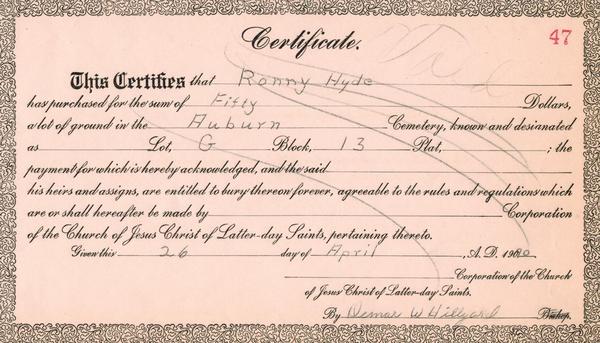 Certificate.
47
This Certifies that Ronny Hyde
has purchased for the sum of Fifty Dollars,
a lot of ground in the Auburn Cemetery, known and designated
as Lot, G Block, 13 Plat, ; the
payment for which is hereby acknowledged, and the said
his heirs and assigns, are entitled to bury thereon forever, agreeable to the rules and regulations which
are or shall hereafter be made by Corporation
of the Church of Jesus Christ of Latter-day Saints, pertaining thereto.
Given this 26 day of April, A.D. 19
Corporation of the Church
of Jesus Christ of Latter-day Saints.
By Demar W Hillyard Bishop.